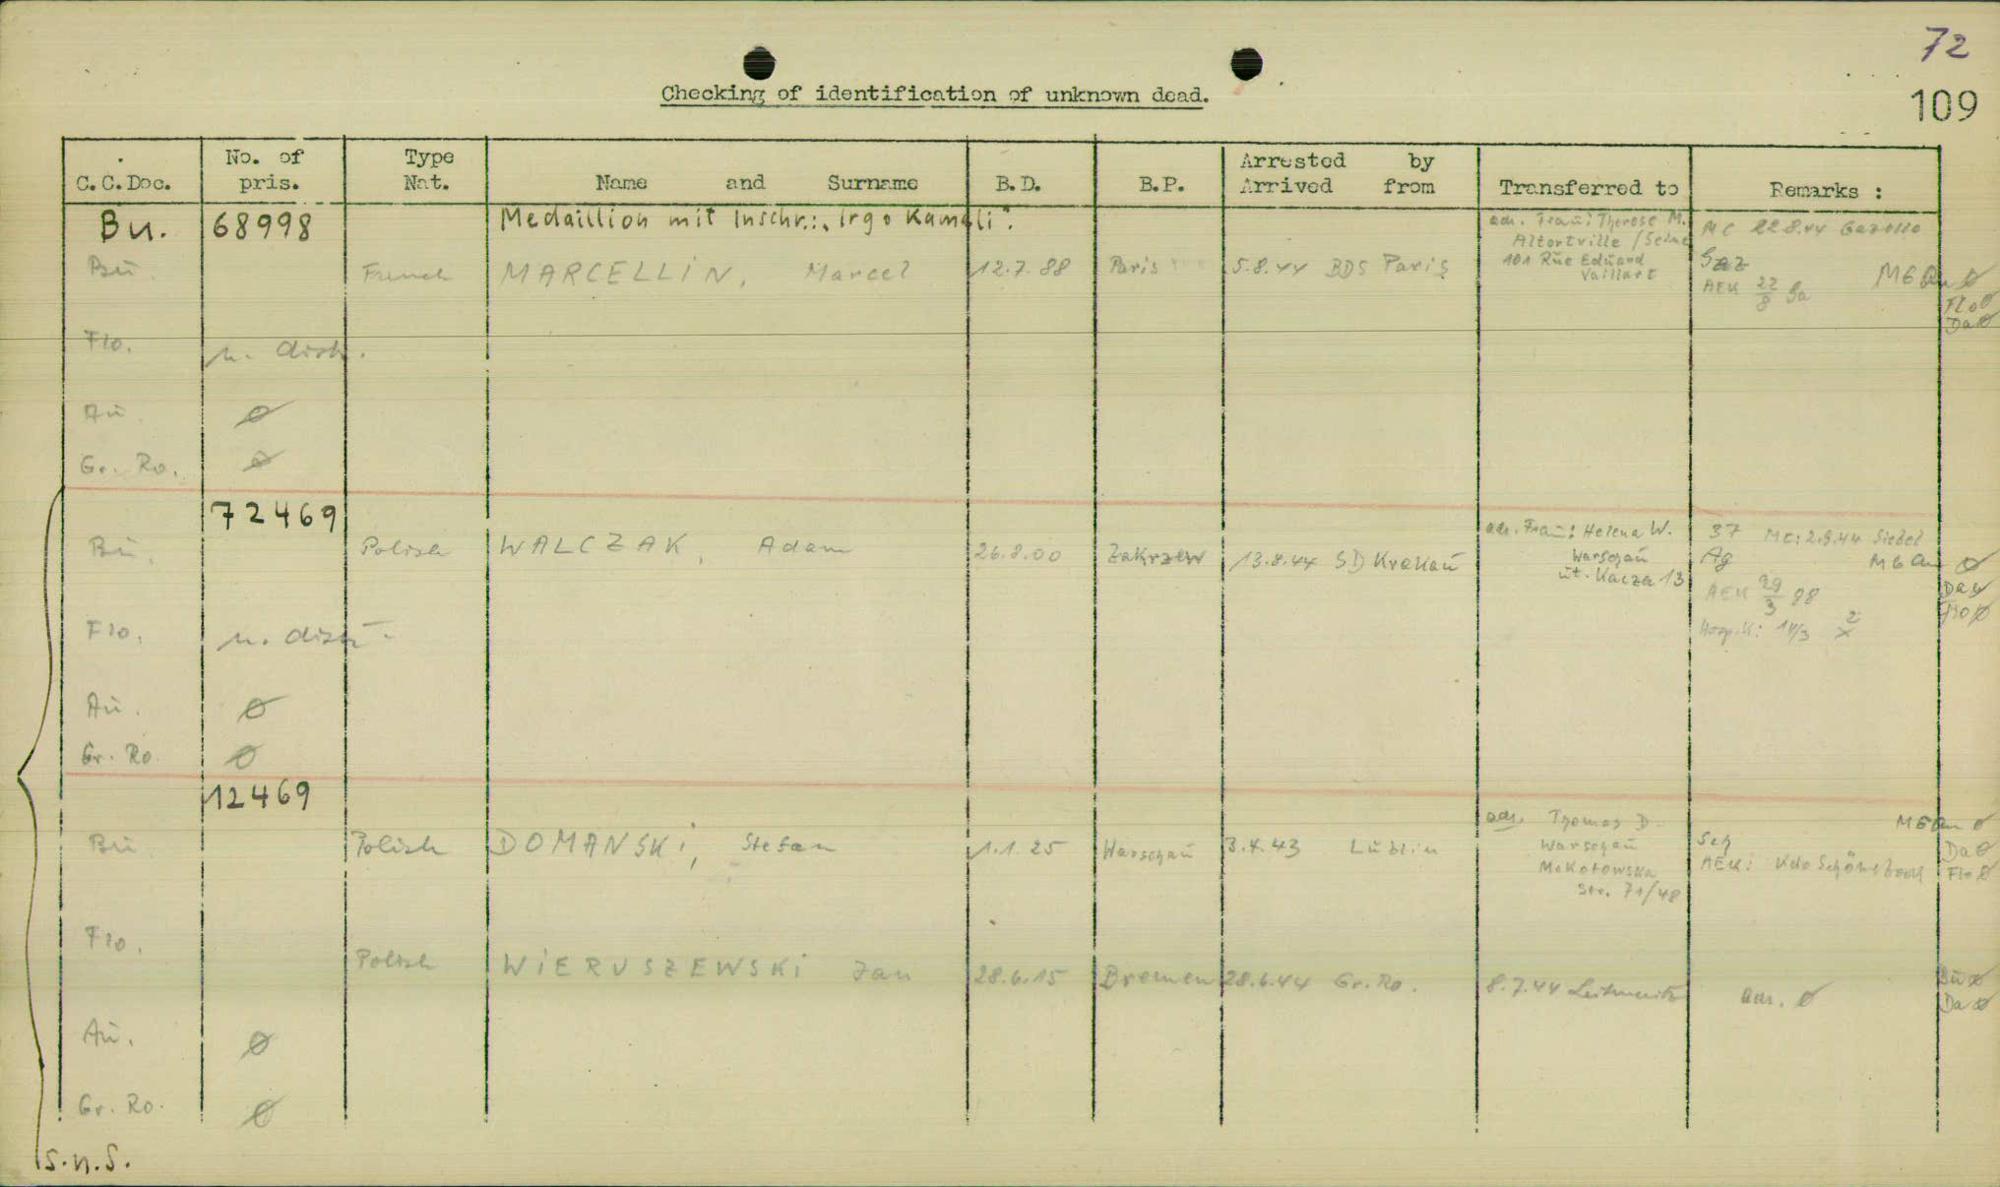 72
109
Checking of identification of unknown dead.
C.C.Doc. No. of pris. Type Nat. Name and Surname B.D. B.P. Arrested by Arrived from Transferred to Remarks :
Bu. 68998 Medaillion mit Inschr.: „Irgo Kamali“.
Bu. French MARCELLIN, Marcel 12.7.88 Paris 5.8.44 BDS Paris
adr. Frau: Therese M.
Altortville / Seine
101 Rue Eduard
Vaillart
MC 22.8.44
AEK 22/8
Flo. n. dist.
Au. ø
Gr. Ro. ø
72469
Bu. Polish WALCZAK, Adam 26.8.00 Zakrzew 13.8.44 SD Krakau
adr. Frau: Helena W.
Warschau
ut. Kacza 13
37 MC: 2.9.44 Siebel
Ag
AEK 29/3 98
Hosp.K: 14/3
Flo. n. dist.
Au. ø
Gr. Ro. ø
12469
Bu. Polish DOMANSKI, Stefan 1.1.25 Warschau 3.4.43 Lublin
adr. Thomas D.
Warschau
Mokotowska
Str. 71/48
Sch
AEK: Kdo Schönebeck
Da ø
Flo ø
Flo. Polish WIERUSZEWSKI Jan 28.6.15 Bremen 28.6.44 Gr. Ro. 8.7.44 Leitmeritz adr. ø
Bu ø
Da ø
Au. ø
Gr. Ro. ø
s.n.S.